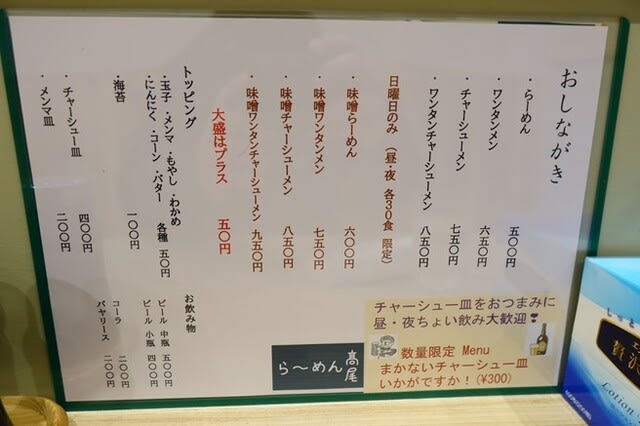 おしながき
・らーめん 五〇〇円
・ワンタンメン 六五〇円
・チャーシューメン 七五〇円
・ワンタンチャーシューメン 八五〇円
日曜日のみ（昼・夜 各30食 限定）
・味噌らーめん 六〇〇円
・味噌ワンタンメン 七五〇円
・味噌チャーシューメン 八五〇円
・味噌ワンタンチャーシューメン 九五〇円
大盛はプラス 五〇円
トッピング
・玉子・メンマ・もやし・わかめ
・にんにく・コーン・バター 各種 五〇円
・海苔 一〇〇円
・チャーシュー皿 四〇〇円
・メンマ皿 二〇〇円
お飲み物
ビール 中瓶 五〇〇円
ビール 小瓶 四〇〇円
コーラ 二〇〇円
バヤリース 二〇〇円
チャーシュー皿をおつまみに
昼・夜ちょい飲み大歓迎❢
数量限定 Menu
まかないチャーシュー皿
いかがですか！(¥300)
ら〜めん 髙尾
贅沢
Lotion